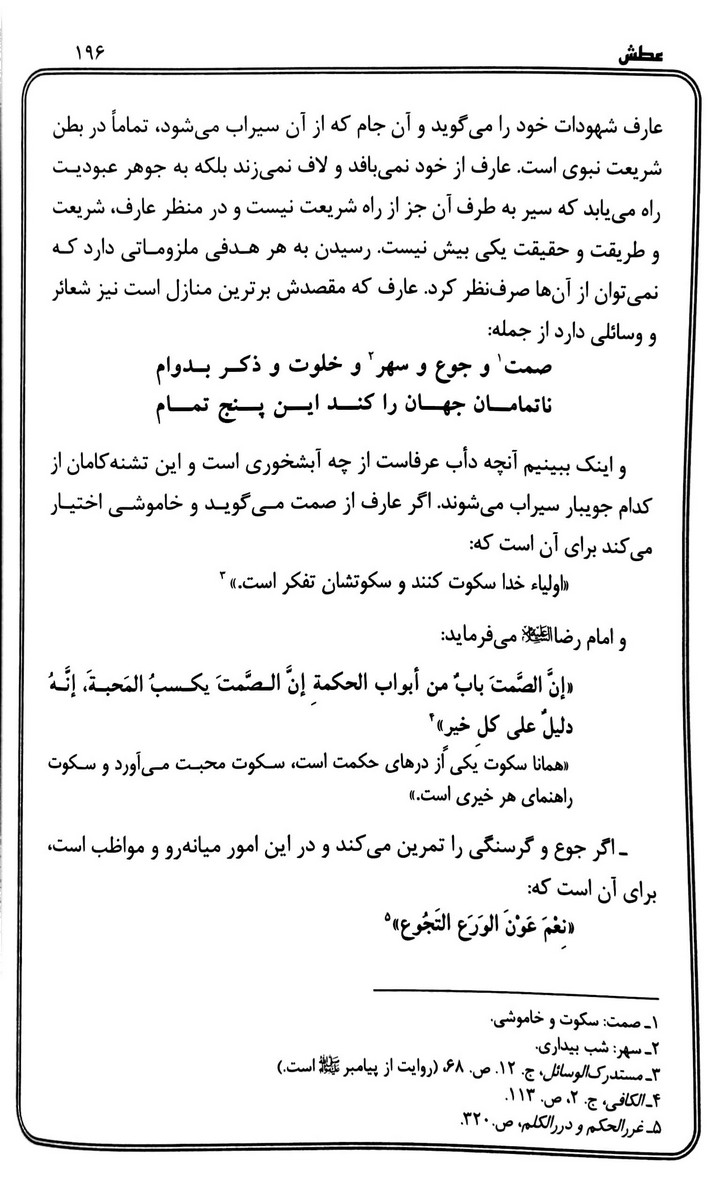 عطش
۱۹۶
عارف شهودات خود را می‌گوید و آن جام که از آن سیراب می‌شود، تماماً در بطن
شریعت نبوی است. عارف از خود نمی‌بافد و لاف نمی‌زند بلکه به جوهر عبودیت
راه می‌یابد که سیر به طرف آن جز از راه شریعت نیست و در منظر عارف، شریعت
و طریقت و حقیقت یکی بیش نیست. رسیدن به هر هدفی ملزوماتی دارد که
نمی‌توان از آن‌ها صرف‌نظر کرد. عارف که مقصدش برترین منازل است نیز شعائر
و وسائلی دارد از جمله:
صمت۱ و جوع و سهر۲ و خلوت و ذکر بدوام
ناتمامان جهان را کند این پنج تمام
و اینک ببینیم آنچه دأب عرفاست از چه آبشخوری است و این تشنه‌کامان از
کدام جویبار سیراب می‌شوند. اگر عارف از صمت می‌گوید و خاموشی اختیار
می‌کند برای آن است که:
«اولیاء خدا سکوت کنند و سکوتشان تفکر است.»۳
و امام رضا علیه‌السلام می‌فرماید:
«إنَّ الصَّمتَ بابٌ من أبواب الحکمةِ إنَّ الصَّمتَ یکسبُ المَحبةَ، إنَّهُ
دلیلٌ علی کلِ خیرٍ»۴
«همانا سکوت یکی از درهای حکمت است، سکوت محبت می‌آورد و سکوت
راهنمای هر خیری است.»
ـ اگر جوع و گرسنگی را تمرین می‌کند و در این امور میانه‌رو و مواظب است،
برای آن است که:
«نِعْمَ عَوْنَ الوَرَعِ التَجُوع»۵
۱ـ صمت: سکوت و خاموشی.
۲ـ سهر: شب بیداری.
۳ـ مستدرک‌الوسائل، ج. ۱۲. ص. ۶۸، (روایت از پیامبر ﷺ است.)
۴ـ الکافی، ج. ۲، ص. ۱۱۳.
۵ـ غررالحکم و دررالکلم، ص. ۳۲۰.